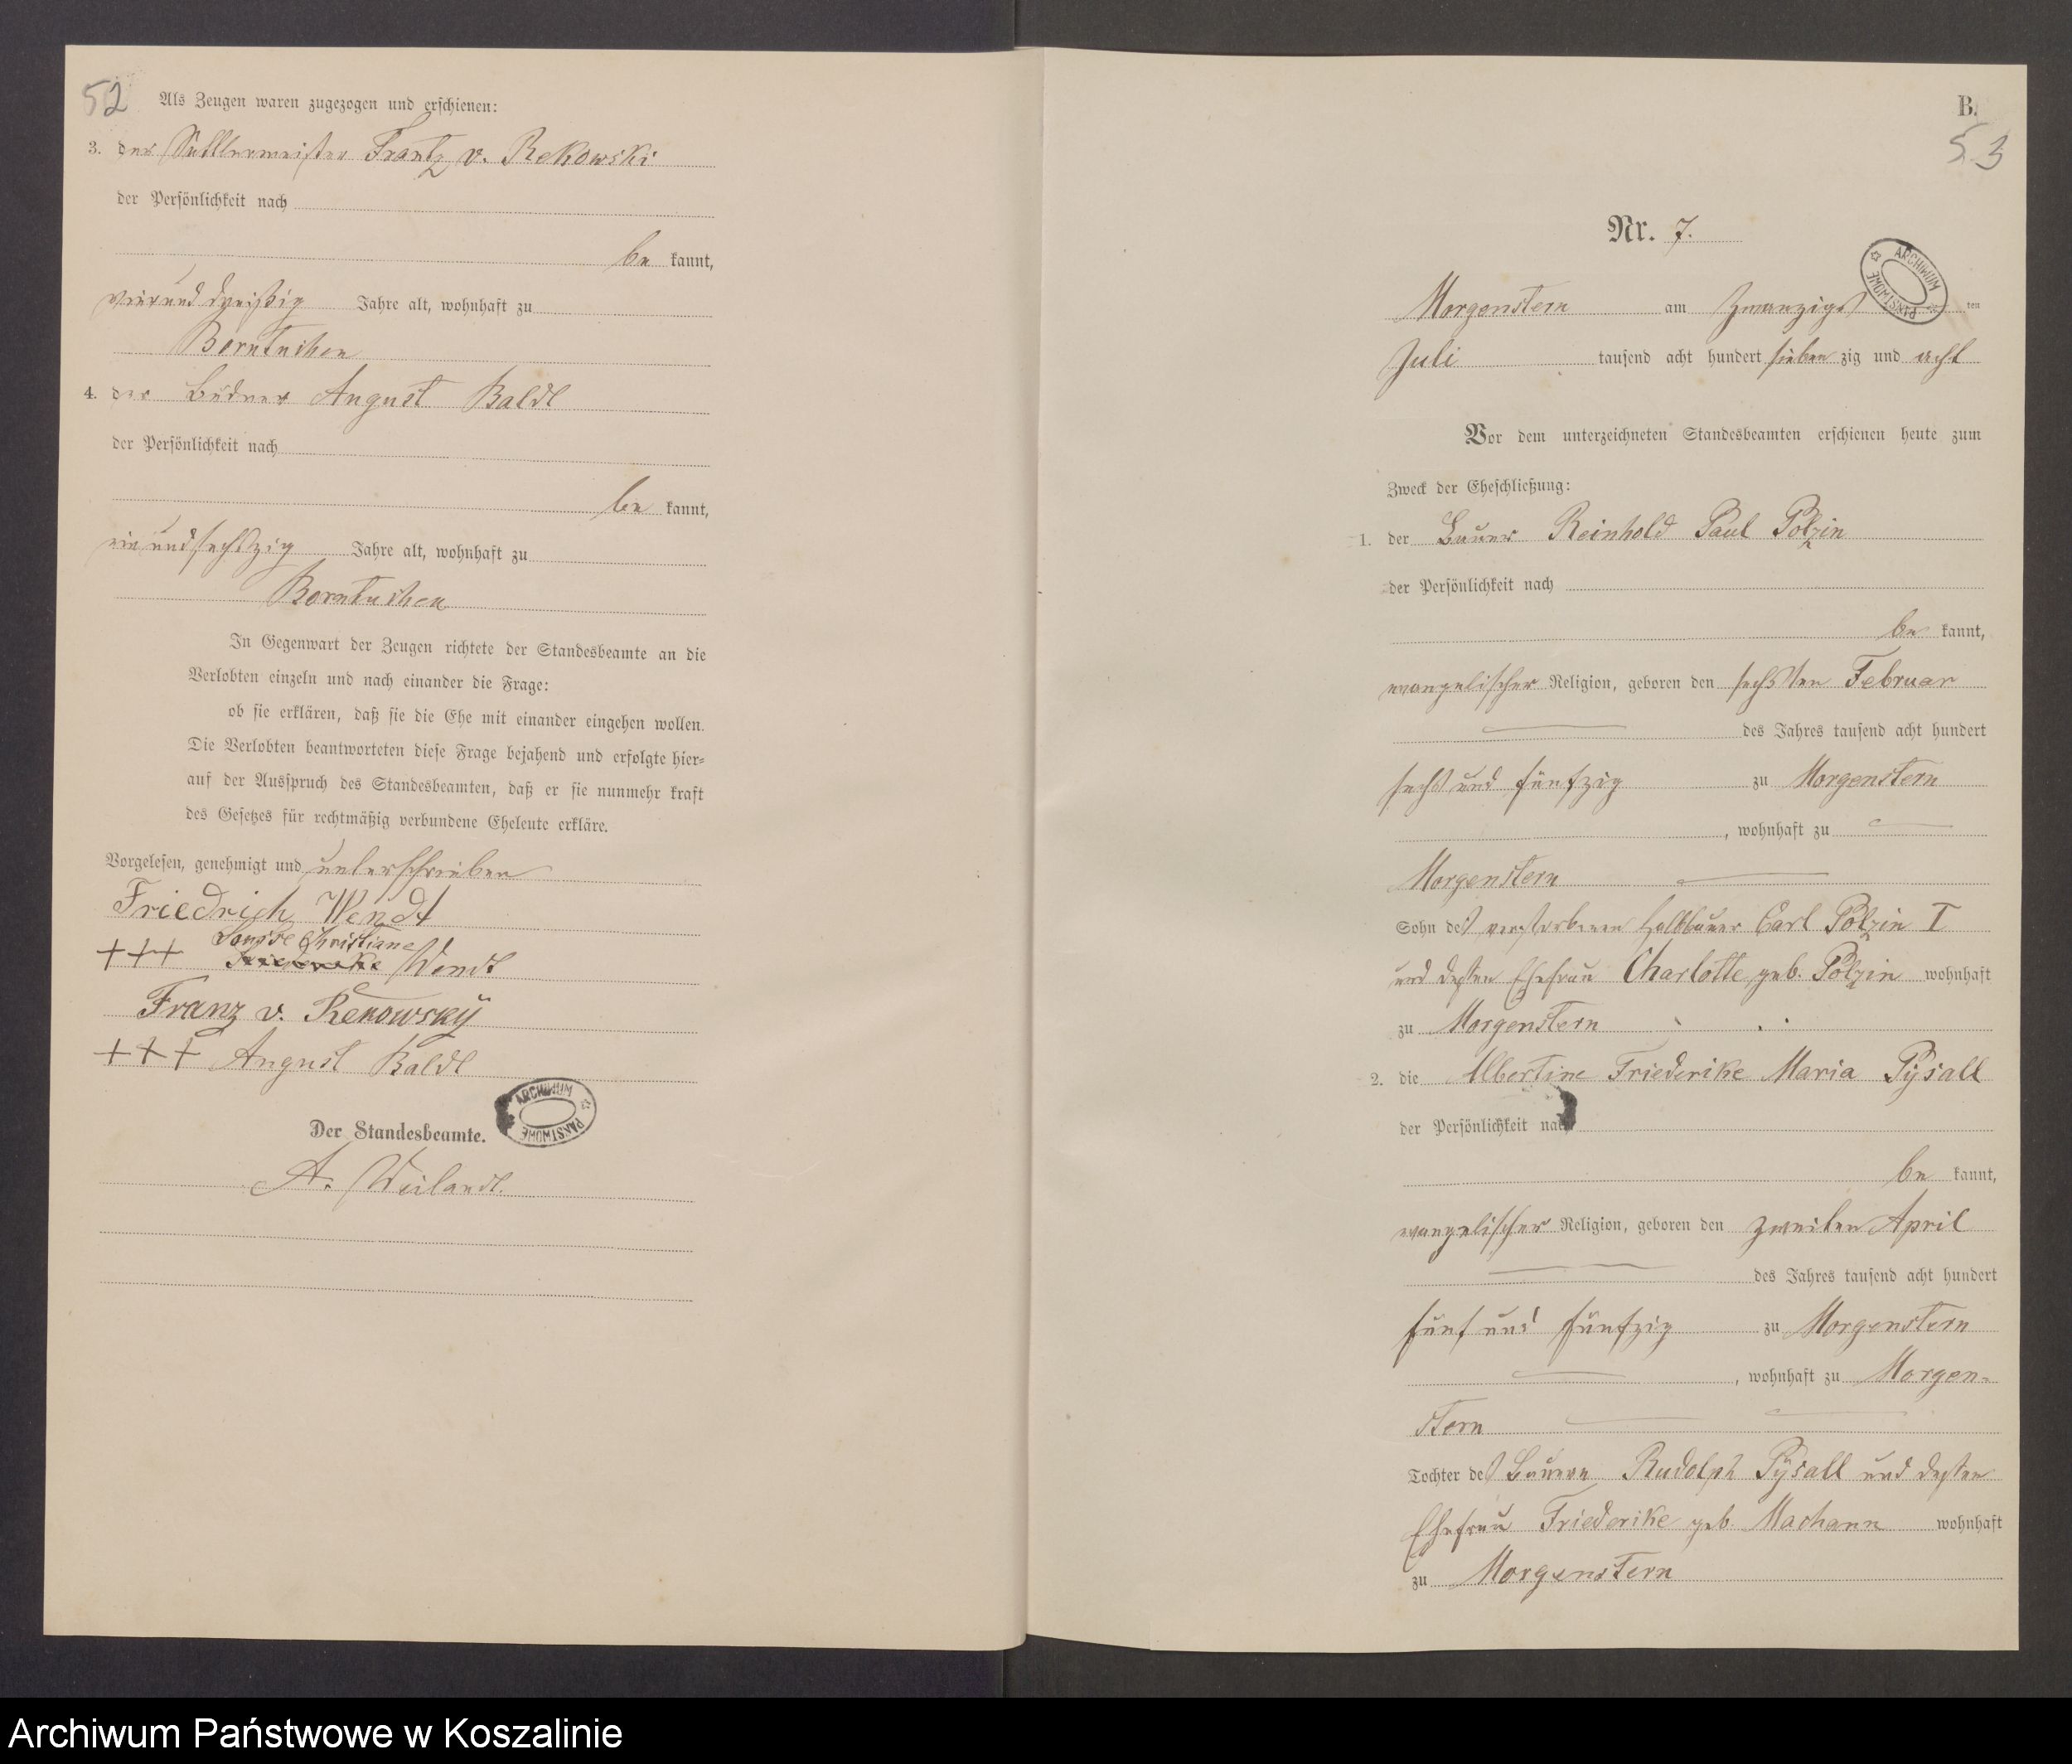 52
Als Zeugen waren zugezogen und erschienen:
3. der Sattlermeister Frantz v. Rekowski
der Persönlichkeit nach
be kannt,
vierund dreißig Jahre alt, wohnhaft zu
Borntuchen
4. der Büdner August Baldt
der Persönlichkeit nach
be kannt,
ein und sechszig Jahre alt, wohnhaft zu
Borntuchen
In Gegenwart der Zeugen richtete der Standesbeamte an die
Verlobten einzeln und nach einander die Frage:
ob sie erklären, daß sie die Ehe mit einander eingehen wollen.
Die Verlobten beantworteten diese Frage bejahend und erfolgte hier=
auf der Ausspruch des Standesbeamten, daß er sie nunmehr kraft
des Gesetzes für rechtmäßig verbundene Eheleute erkläre.
Vorgelesen, genehmigt und unterschrieben
Friedrich Wendt
Christiane
+++ Wendt
Franz v. Rekowskÿ
+++ August Baldt
ARCHIWUM PAŃSTWOWE
Der Standesbeamte.
A. Weilandt.
B.
53
Nr. 7.
ARCHIWUM PAŃSTWOWE
Morgenstern am Zwanzigs ten
Juli tausend acht hundert sieben zig und acht
Vor dem unterzeichneten Standesbeamten erschienen heute zum
Zweck der Eheschließung:
1. der Bauer Reinhold Paul Polzin
der Persönlichkeit nach
be kannt,
evangelischer Religion, geboren den sechsten Februar
des Jahres tausend acht hundert
sechs und fünfzig zu Morgenstern
, wohnhaft zu
Morgenstern
Sohn des verstorbenen Halbbauer Carl Polzin I
und dessen Ehefrau Charlotte geb. Polzin wohnhaft
zu Morgenstern
2. die Albertine Friederike Maria Pÿsall
der Persönlichkeit nach
be kannt,
evangelischer Religion, geboren den zweiten April
des Jahres tausend acht hundert
fünf und fünfzig zu Morgenstern
, wohnhaft zu Morgen-
stern
Tochter des Bauern Rudolph Pÿsall und dessen
Ehefrau Friederike geb. Machann wohnhaft
zu Morgenstern
Archiwum Państwowe w Koszalinie